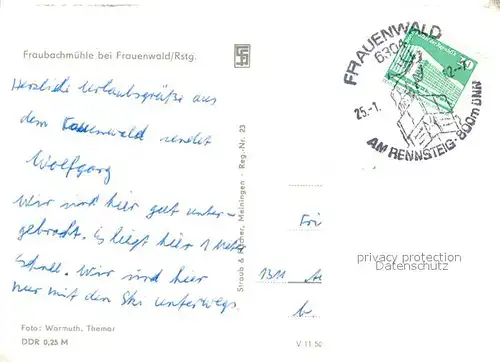 Fraubachmühle bei Frauenwald/Rstg.
Herzliche Urlaubsgrüße aus
dem Frauenwald sendet
Wolfgang
Wir sind hier gut unter-
gebracht. Es liegt hier 1 Meter
Schnee. Wir sind hier
nur mit den Ski unterwegs.
Foto: Warmuth, Themar
DDR 0,25 M
Straub & Fischer, Meiningen - Reg.-Nr. 23
V 11 50
FRAUENWALD
6304
25.-1.
AM RENNSTEIG · 800m ÜNN
Fri
1311
b.
privacy protection
Datenschutz